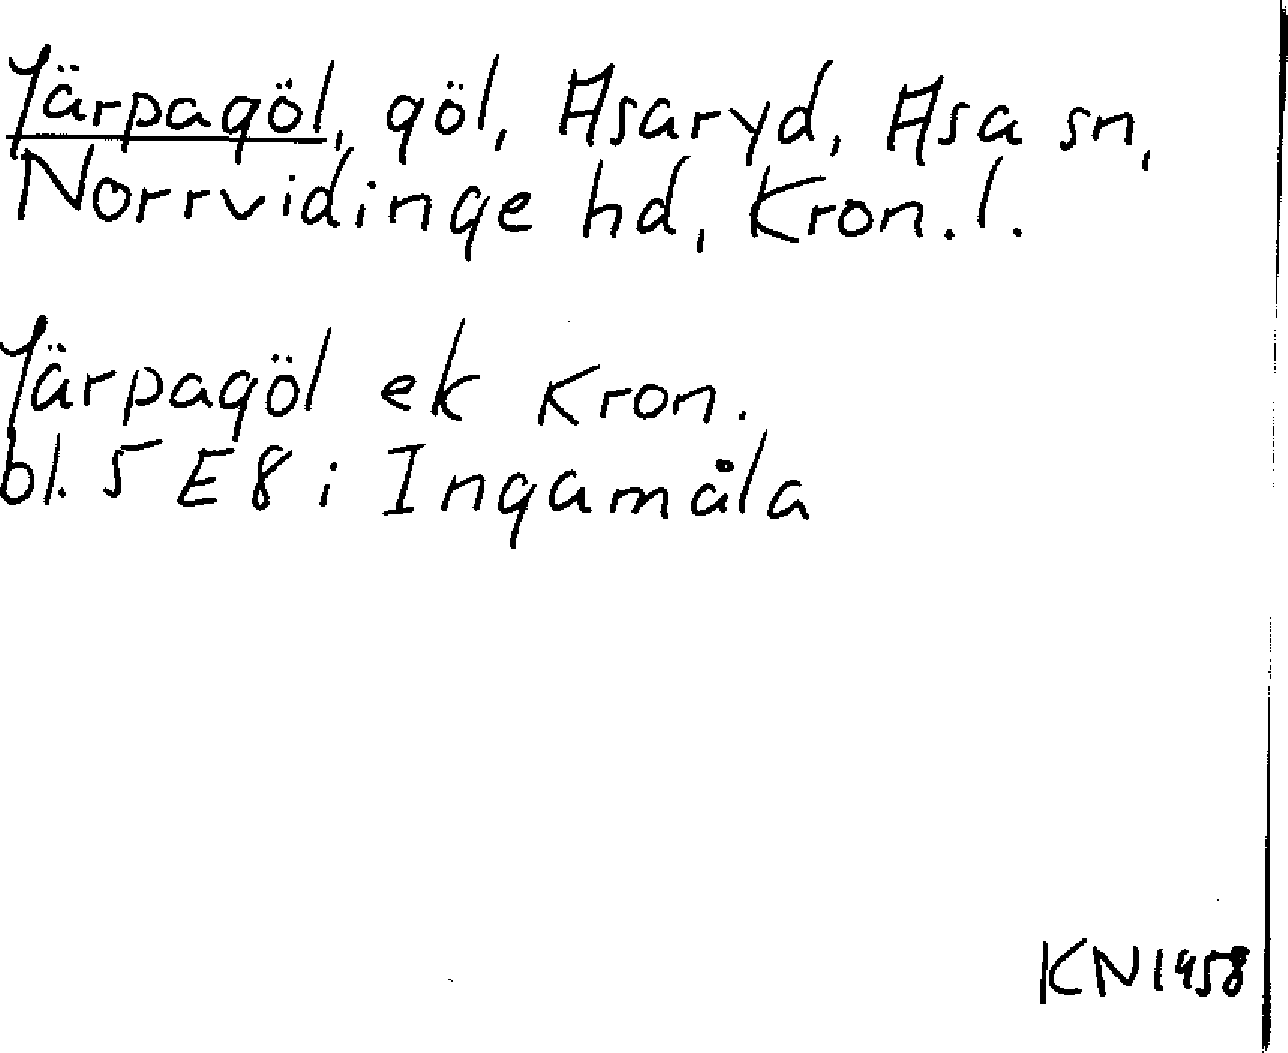 Järpagöl, göl, Asaryd, Asa sn,
Norrvidinge hd, Kron. l.
Järpagöl ek Kron.
bl. 5 E8 i Ingamåla
KN 1958